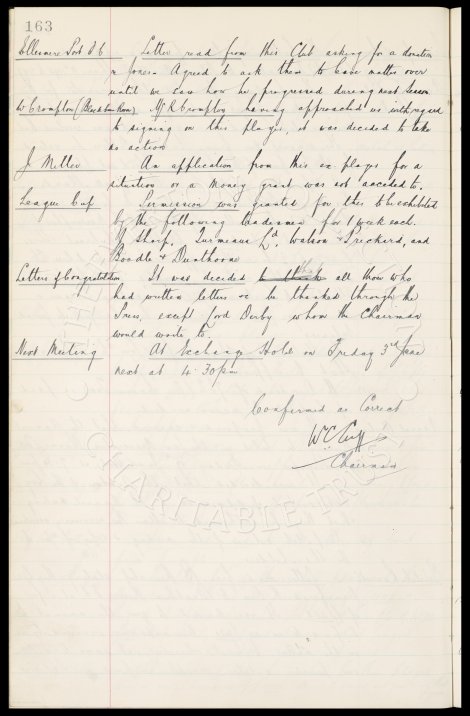 163
Ellesmere Port F C Letter read from this Club asking for a donation
re Jones. Agreed to ask them to leave matter over
until we saw how he progressed during next season
W Crompton (Blackburn Rovers) W R Crompton having approached us with regard
to signing on this player, it was decided to take
no action
J. Meller An application from this ex player for a
situation or a money grant was not acceded to.
League Cup Permission was granted for this to be exhibited
by the following tradesmen for 1 week each.
W Sharp, Surmeaus Ld, Watson Prickard, and
Boodle & Dunthorne
Letters of Congratulation It was decided all those who
had written letters be thanked through the
Press, except Lord Derby whom the Chairman
would write to.
Next Meeting At Exchange Hotel on Friday 3rd June
next at 4.30pm
Confirmed as Correct
W.C. Cuff
Chairman
CHARITABLE TRUST